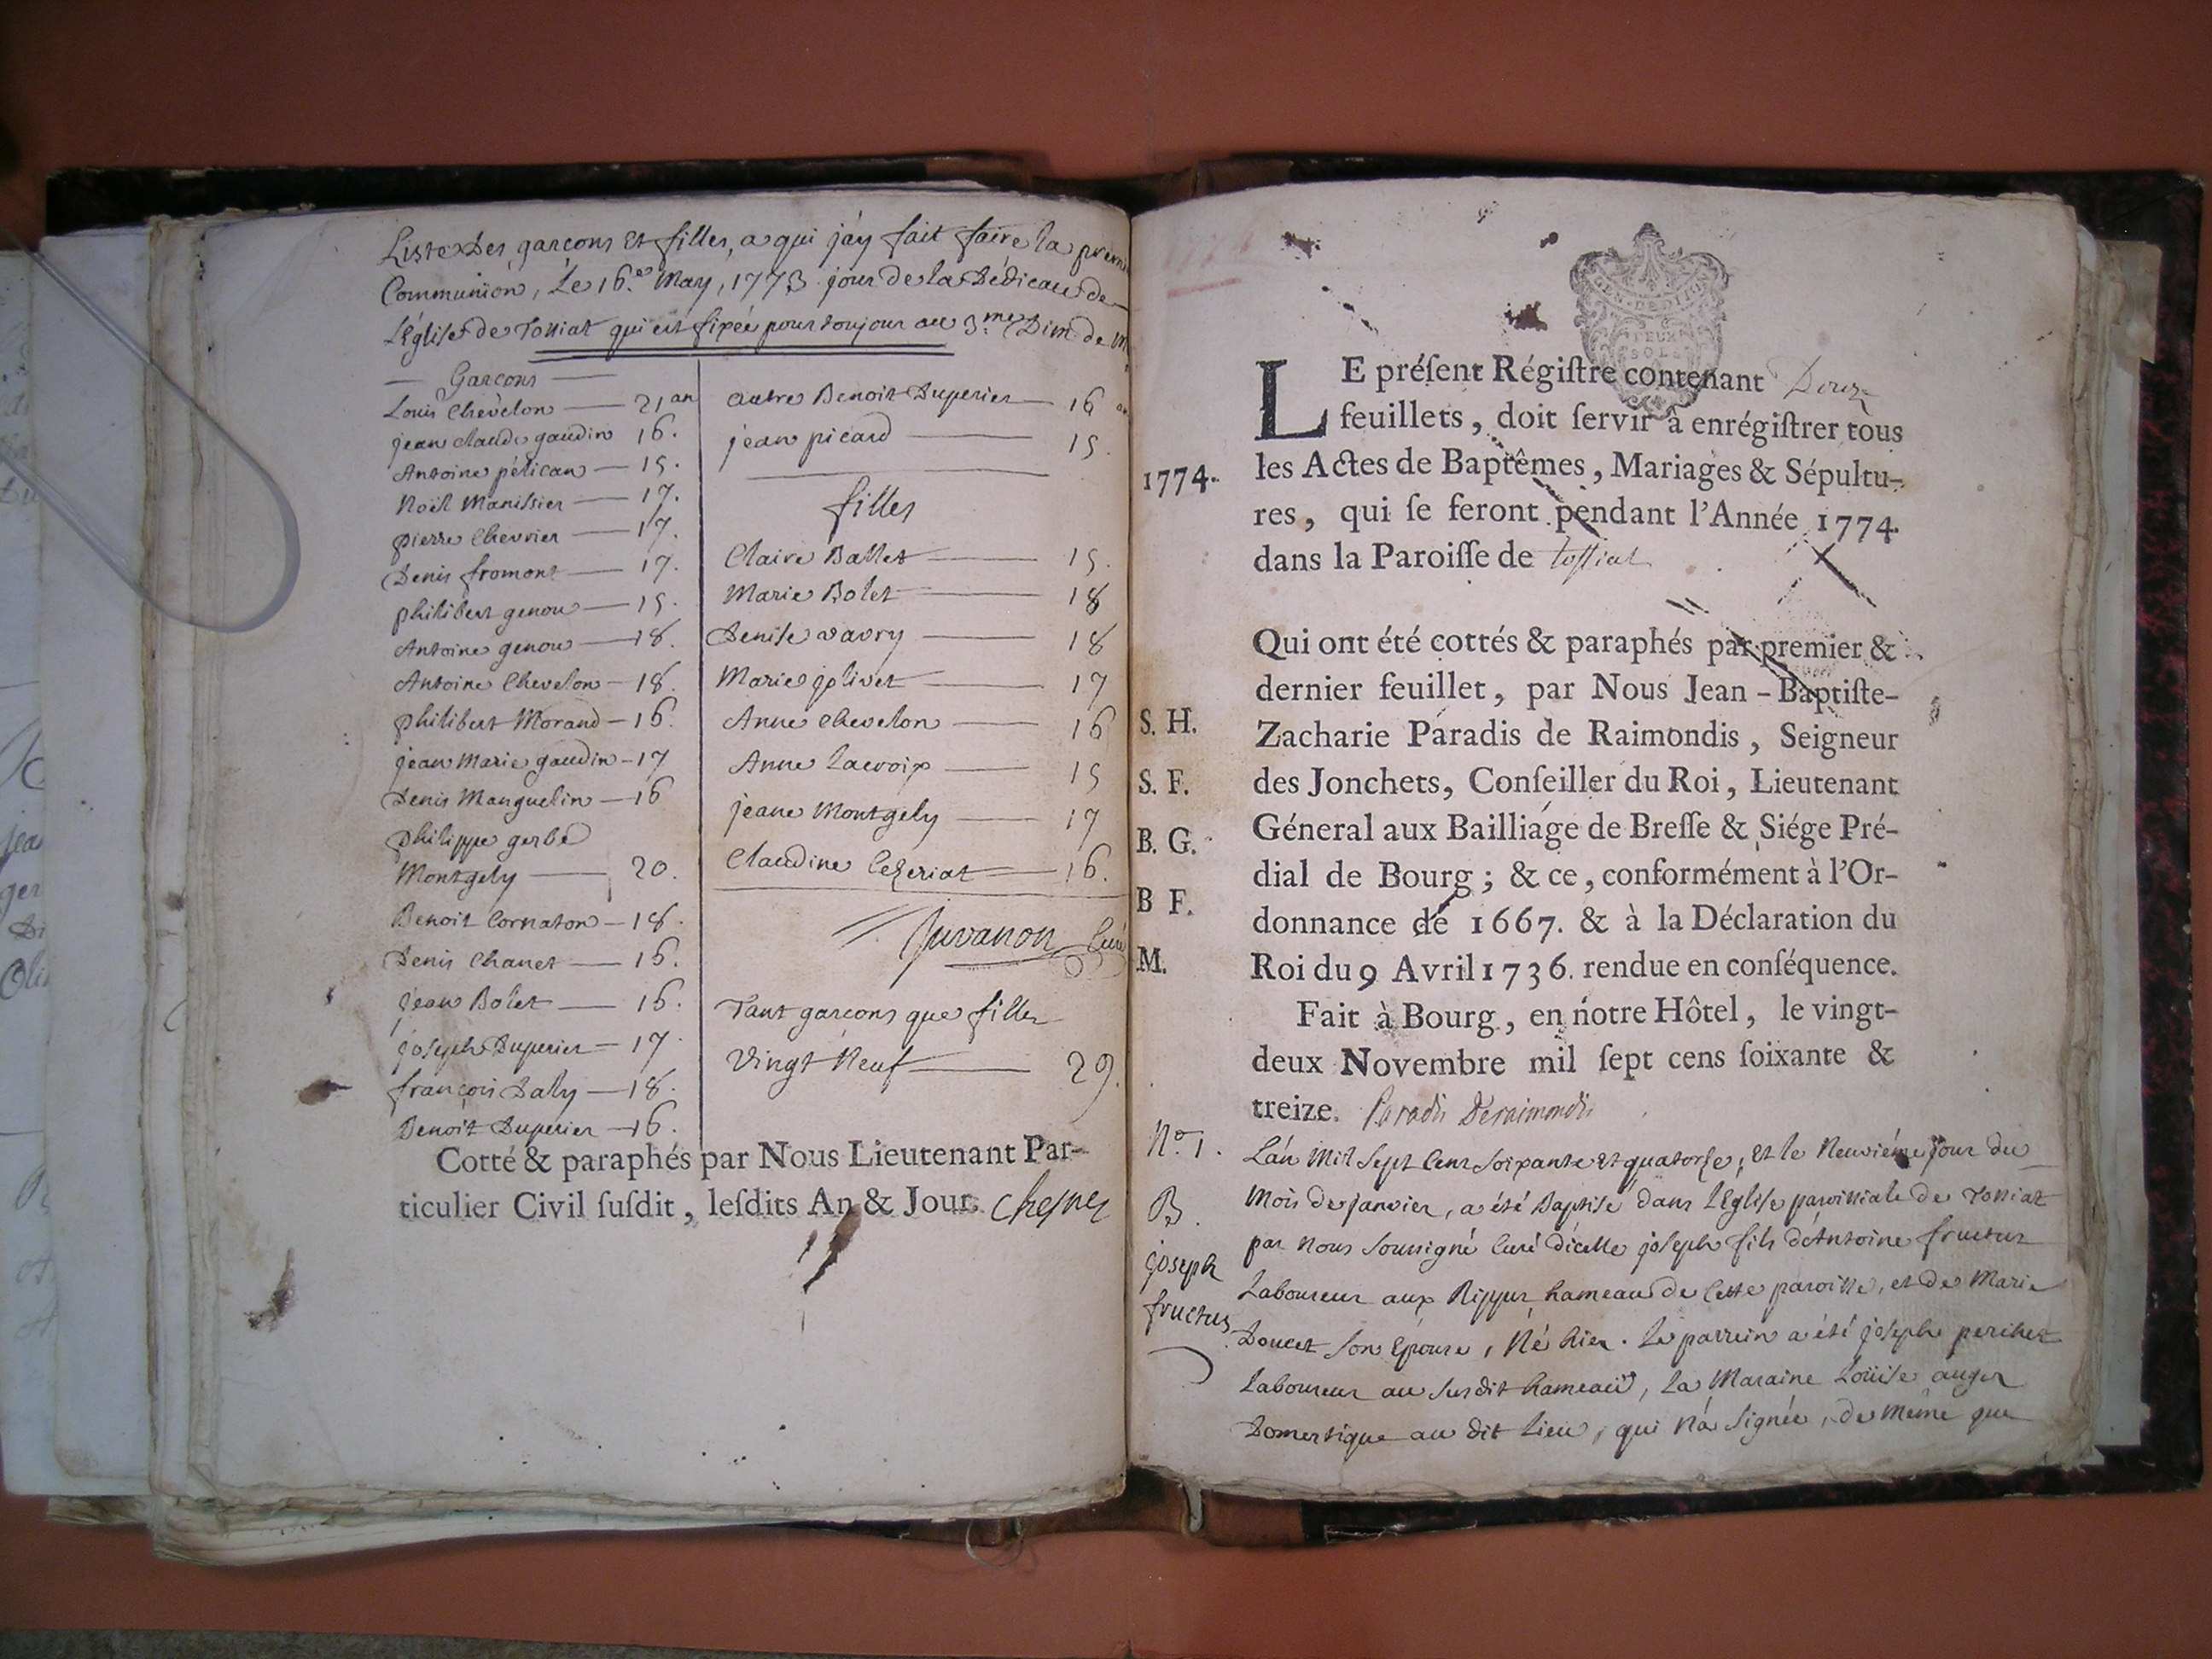 Liste Des garçons Et filles, a qui j'ay fait faire la prem
Communion, Le 16.e May, 1773 jour de la Dédicace de
L'Église de Tossiat qui est fixée pour toujour au 3.me Dim. de M
Garçons
Louis Chevelon — 21 an
jean claude gaudin 16.
Antoine pélican — 15.
Noël Manissier — 17.
pierre Chevrier — 17.
Denis fromont — 17.
philibert genou — 15.
Antoine genou — 18.
Antoine Chevelon — 18.
philibert Morand — 16.
jean Marie gaudin — 17
Denis Manguelin — 16
philippe gerbe
Montgely — 20.
Benoit Cornaton — 18.
Denis Chanet — 16.
jean Bolet — 16.
joseph Duperier — 17.
françois Daly — 18.
Benoit Duperier — 16.
autre Benoit Duperier — 16
jean picard — 15.
filles
Claire Ballet — 15.
Marie Bolet — 18
Denise vavry — 18
Marie jolivet — 17
Anne Chevelon — 16
Anne Lacroix — 15
jeane Montgely — 17
Claudine Cezeriat — 16.
Juvanon Curé
Tant garçons que filles
Vingt Neuf — 29.
Cotté & paraphés par Nous Lieutenant Par-
ticulier Civil susdit, lesdits An & Jour. Chesney
LE présent Régistre contenant Douze
feuillets, doit servir à enrégistrer tous
1774. les Actes de Baptêmes, Mariages & Sépultu-
res, qui se feront pendant l'Année 1774.
dans la Paroisse de tossiat
Qui ont été cottés & paraphés par premier &
dernier feuillet, par Nous Jean-Baptiste-
S. H. Zacharie Paradis de Raimondis, Seigneur
S. F. des Jonchets, Conseiller du Roi, Lieutenant
B. G. Géneral aux Bailliage de Bresse & Siége Pré-
dial de Bourg; & ce, conformément à l'Or-
B F. donnance de 1667. & à la Déclaration du
M. Roi du 9 Avril 1736. rendue en conséquence.
Fait à Bourg, en notre Hôtel, le vingt-
deux Novembre mil sept cens soixante &
treize. Paradis Deraimondis
N.o 1.
B.
joseph
fructus
L'an Mil Sept Cent Soixante Et quatorse, Et le Neuviéme jour du
Mois de janvier, a été Baptisé dans l'Église paroissiale de Tossiat
par Nous Soussigné Curé d'icelle joseph fils d'Antoine fructus
Laboureur aux Rippes hameau de Cette paroisse, et de Marie
Doucet son Épouse, Né hier. Le parrein a été joseph perichet
Laboureur au susdit hameau, La Maraine Loüise auger
Domestique au dit Lieu, qui N'a Signée, de Même que